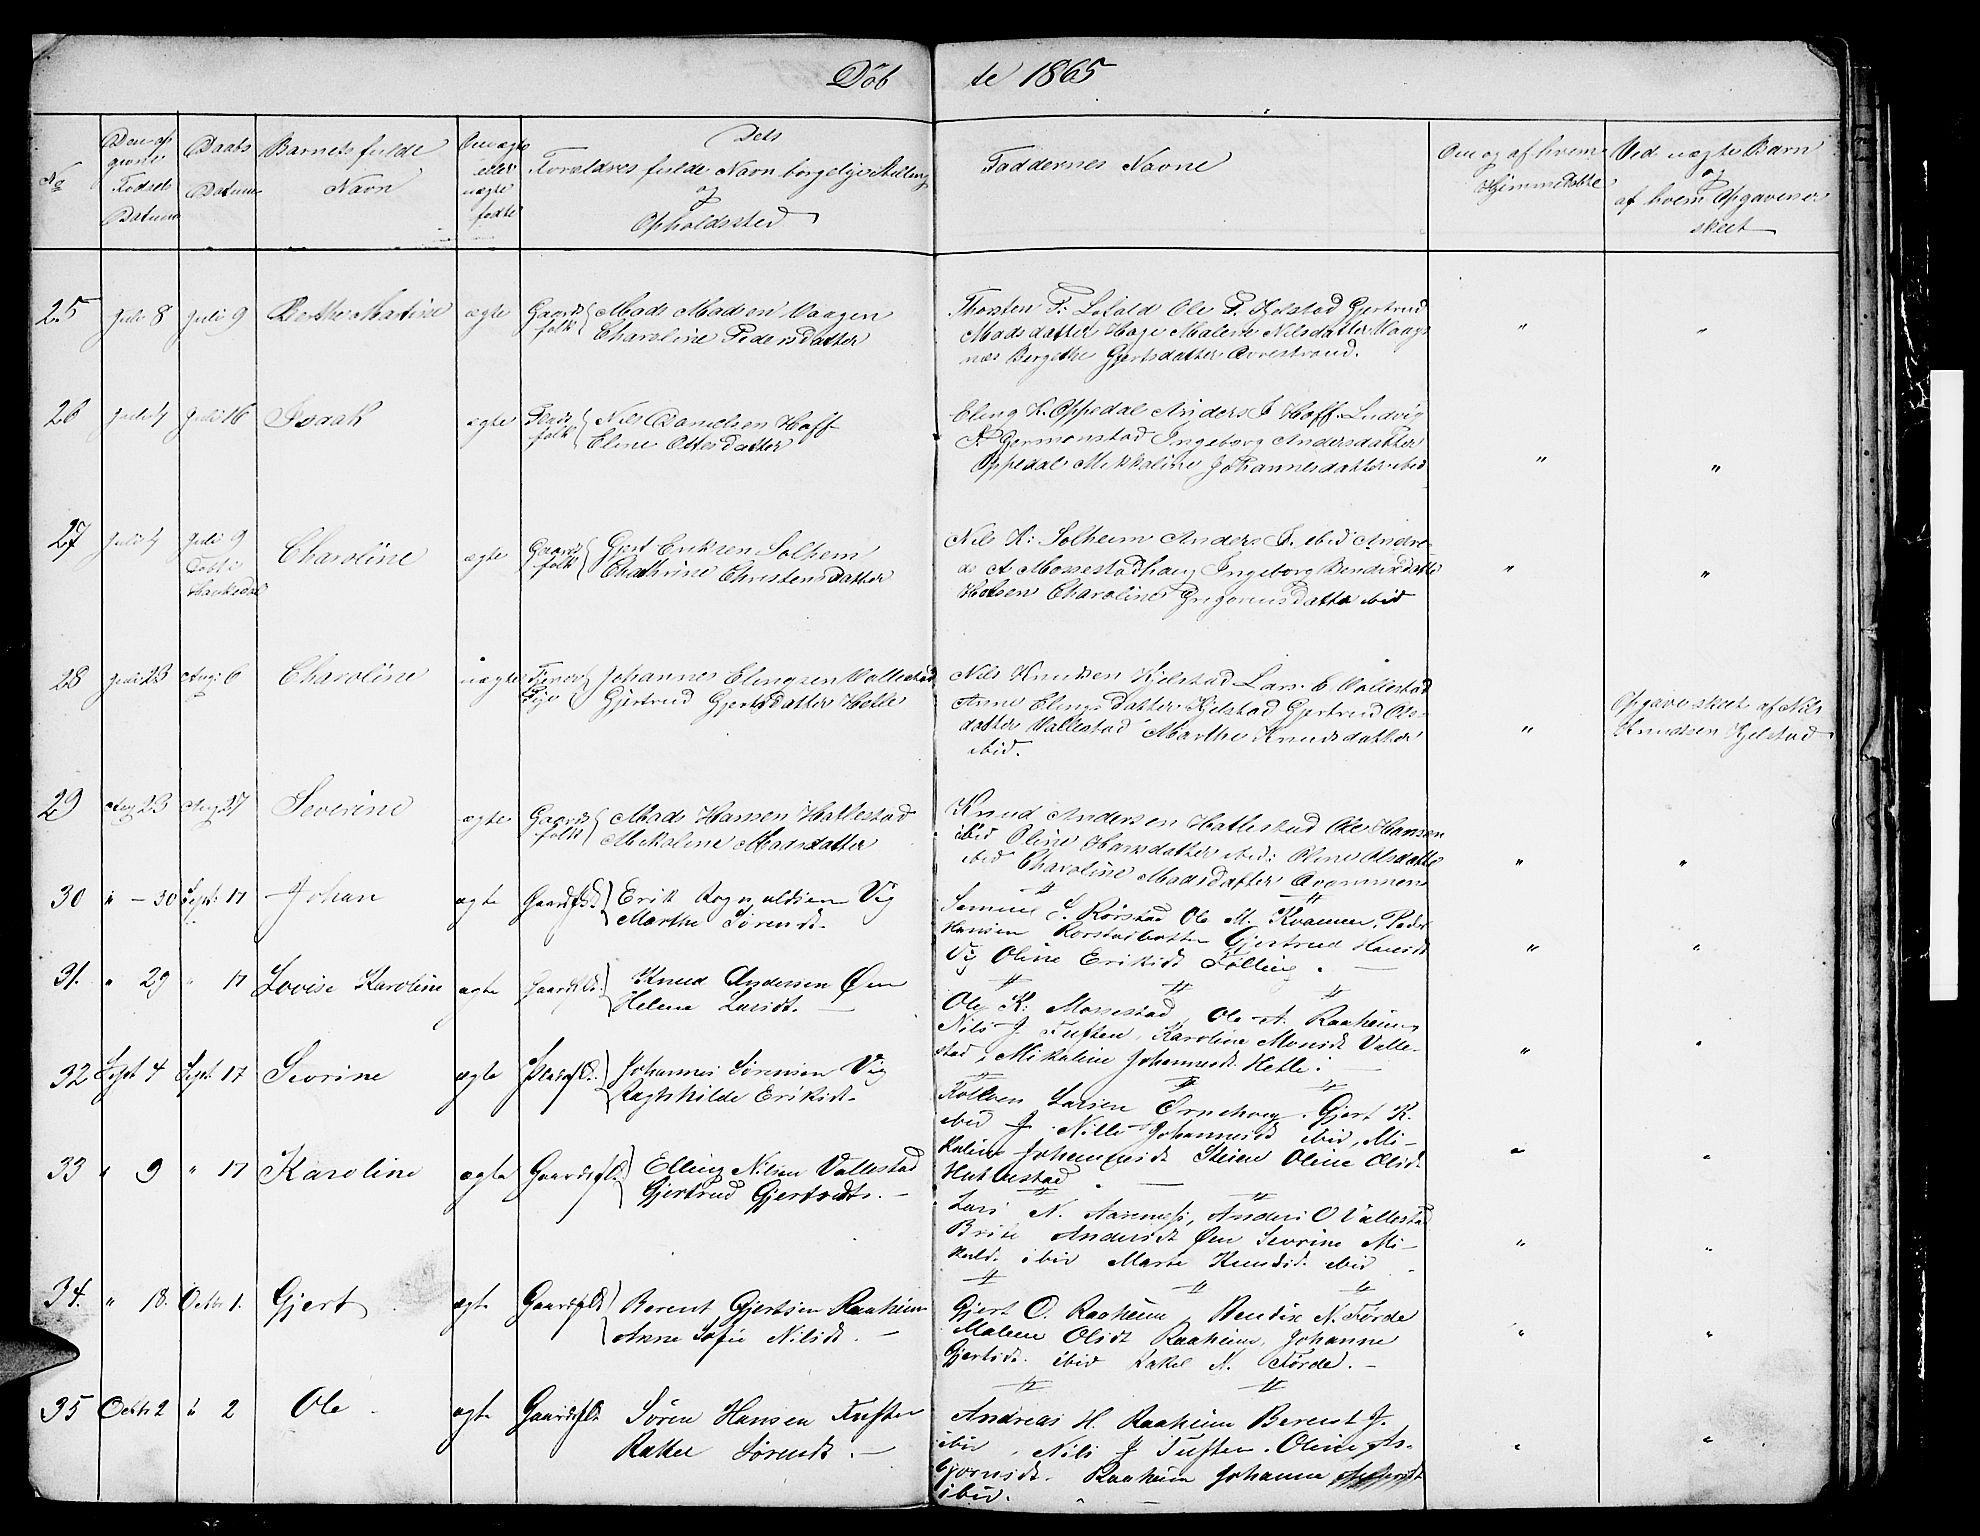 Døb te 1865
No
Den op
givne
Fødsels
Datum
Daabs
Datum
Barnets fulde
Navn
Om ægte
eller
uægte
fødte
Dets
Forældres fulde Navn borgelige Stilling
og
Opholdssted
Faddernes Navne
Om og af hvem
Hjemmedøbte
Ved uægte Barn
og
af hvem Opgaven er
skeet
25 Juli 8 Juli 9 Berthe Matine ægte Gaards folk Mads Madsen Vaagen
Charoline Pedersdatter
Thorsten P. Ole P. Hjelstad Gjertrud
Madsdatter Hage Malene Nilsdatter Vaags
næs Bergithe Gjertsdatter Ovrestrand. " "
26 Juli 4 Juli 16 Isaak ægte Plads folk Nils Danielsen Hoff
Eline Ottersdatter
Eling K. Oppedal Anders I Hoff Ludvig
P. Gormonstad Ingeborg Andersdatter
Oppedal Mikkaline Johannesdatter ibid " "
27 Juli 4 Juli 9
Døbt i
Charoline ægte Gaards folk Gjert Eriksen Solhem
Chathrine Christensdatter
Nils A: Solheim Anders I. ibid Andre
as A Mossestadhaug Ingeborg Bendixdatte
Holsen Charoline Gregoriusdatte ibid " "
28 Juli 23 Aug: 6 Charoline uægte Tjener Pige Johannes Elingsen Vallestad
Gjertrud Gjertsdatter Hetle
Nils Knudsen Hjelstad Lars. E. Vallestad
Anne Elingsdatter Hjelstad Gjertrud Ols-
datter Vallestad Marthe Knudsdatter
ibid. "
Opgave skeet af Nils
Knudsen Hjelstad
29 Aug 23 Aug 27 Severine ægte Gaards folk Mads Hansen Hatlestad
Mikaline Madsdatter
Knud Andersen Hatlestad Ole Hansen
ibid Oline Hansdatter ibid: Oline Olsdatte
ibid Charoline Madsdatter Qvammen " "
30 " - 30 Sept. 17 Johan ægte Gaardsflk Erik Rognaldsen Vig
Marthe Sørensdt.
Samuel S. Rörstad Ole M. Kvamen, Peder
Hansen Rorstadbotten Gjertrud Hansdt
Vig Oline Eriksdt Følling. " "
31. " 29 " 17 Lovise Karoline ægte Gaardsflk. Knud Andersen Øen
Helene Larsdt.
Ole K. Mossestad, Ole A. Raaheim
Nils J Tuften, Karoline Monsdt Valle-
stad, Mikaline Johannesdt. Hetle. " "
32 Sept 4 Sept 17 Sevrine ægte Pladsflk. Johannes Sørensen Vig
Ragnhilde Eriksdt.
Kolbein Larsen Ørnehoug. Gjert K.
ibid J. Nille Johannesdt ibid, Mi-
kaline Johannesdt Steine Oline Olsdt
Hatlestad
33 " 9 " 17 Karoline ægte Gaardsflk Elling Nilsen Vallestad
Gjertrud Gjertsdtr.
Lars N. Aarenes, Anders O Vallestad
Brite Andersdt Øen Sevrine Mi-
ibid Marte Knudsdt. ibid " "
34. " 18. Octbr 1. Gjert ægte Gaardsflk Berent Gjertsen Raaheim
Anne Sofie Nilsdt.
Gjert O. Raaheim Bendix N. Førde
Malene Olsdt Raaheim, Johanne
Gjertsdt. ibid Rakel N. Førde. " "
35 Octbr 2 " 2 Ole ægte Gaardsflk Søren Hansen Tuften
Rakel Sørensdt.
Andreas H. Raaheim Berent J.
ibid, Nils J Tuften. Oline As-
bjørnsdt. Raaheim Johanne
ibid. " "